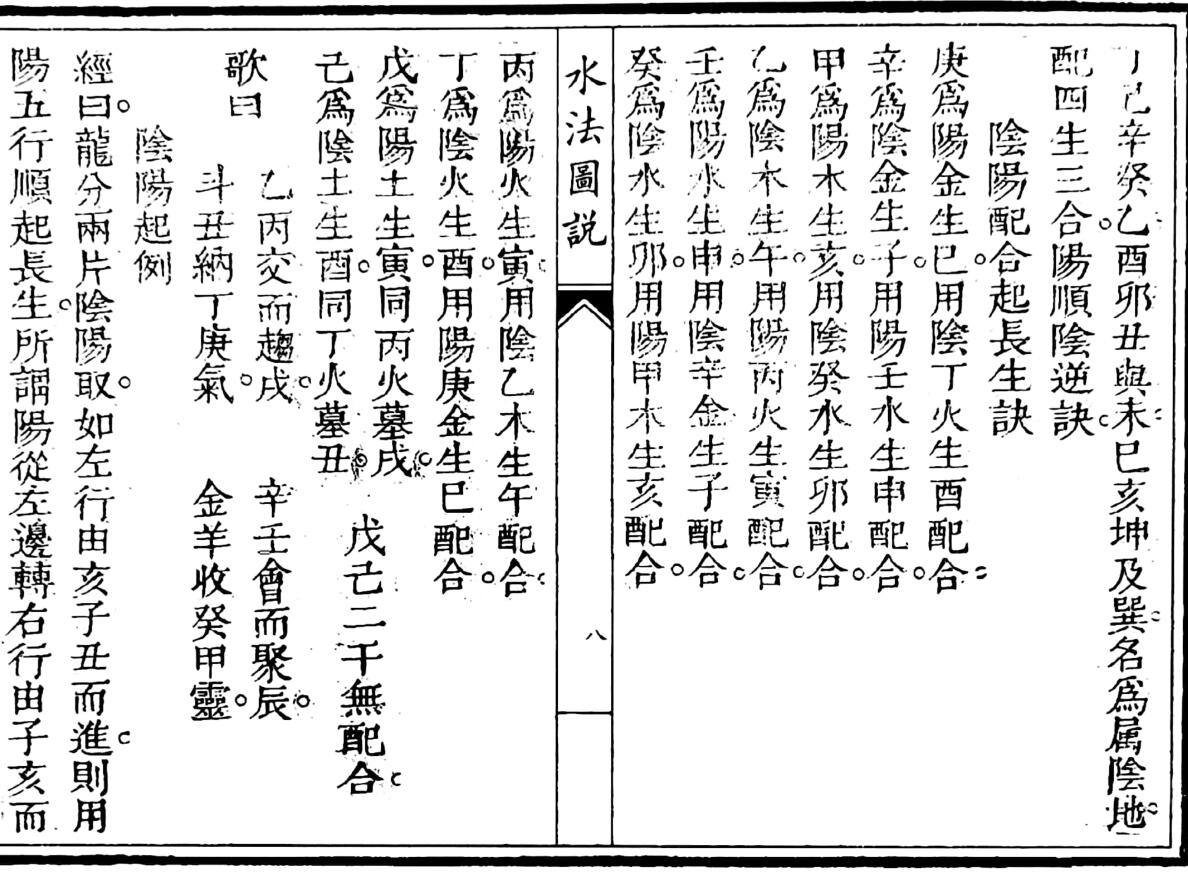 丁己辛癸乙酉卯丑與未巳亥坤及巽名爲属陰地
配四生三合。陽順陰逆訣。
陰陽配合起長生訣
庚爲陽金生巳。用陰丁火生酉配合。
辛爲陰金生子。用陽壬水生申配合。
甲爲陽木生亥。用陰癸水生卯配合。
乙爲陰木生午。用陽丙火生寅配合。
壬爲陽水生申。用陰辛金生子配合。
癸爲陰水生卯。用陽甲木生亥配合。
水法圖説
八
丙爲陽火生寅。用陰乙木生午配合。
丁爲陰火生酉。用陽庚金生巳配合。
戊爲陽土生寅。同丙火墓戌。
己爲陰土生酉。同丁火墓丑。
戊己二干無配合。
歌曰
乙丙交而趨戌。辛壬會而聚辰。
斗丑納丁庚氣。金羊收癸甲靈。
陰陽起例
經曰。龍分兩片陰陽取。如左行由亥子丑而進。則用
陽五行順起長生。所謂陽從左邊轉右行由子亥而